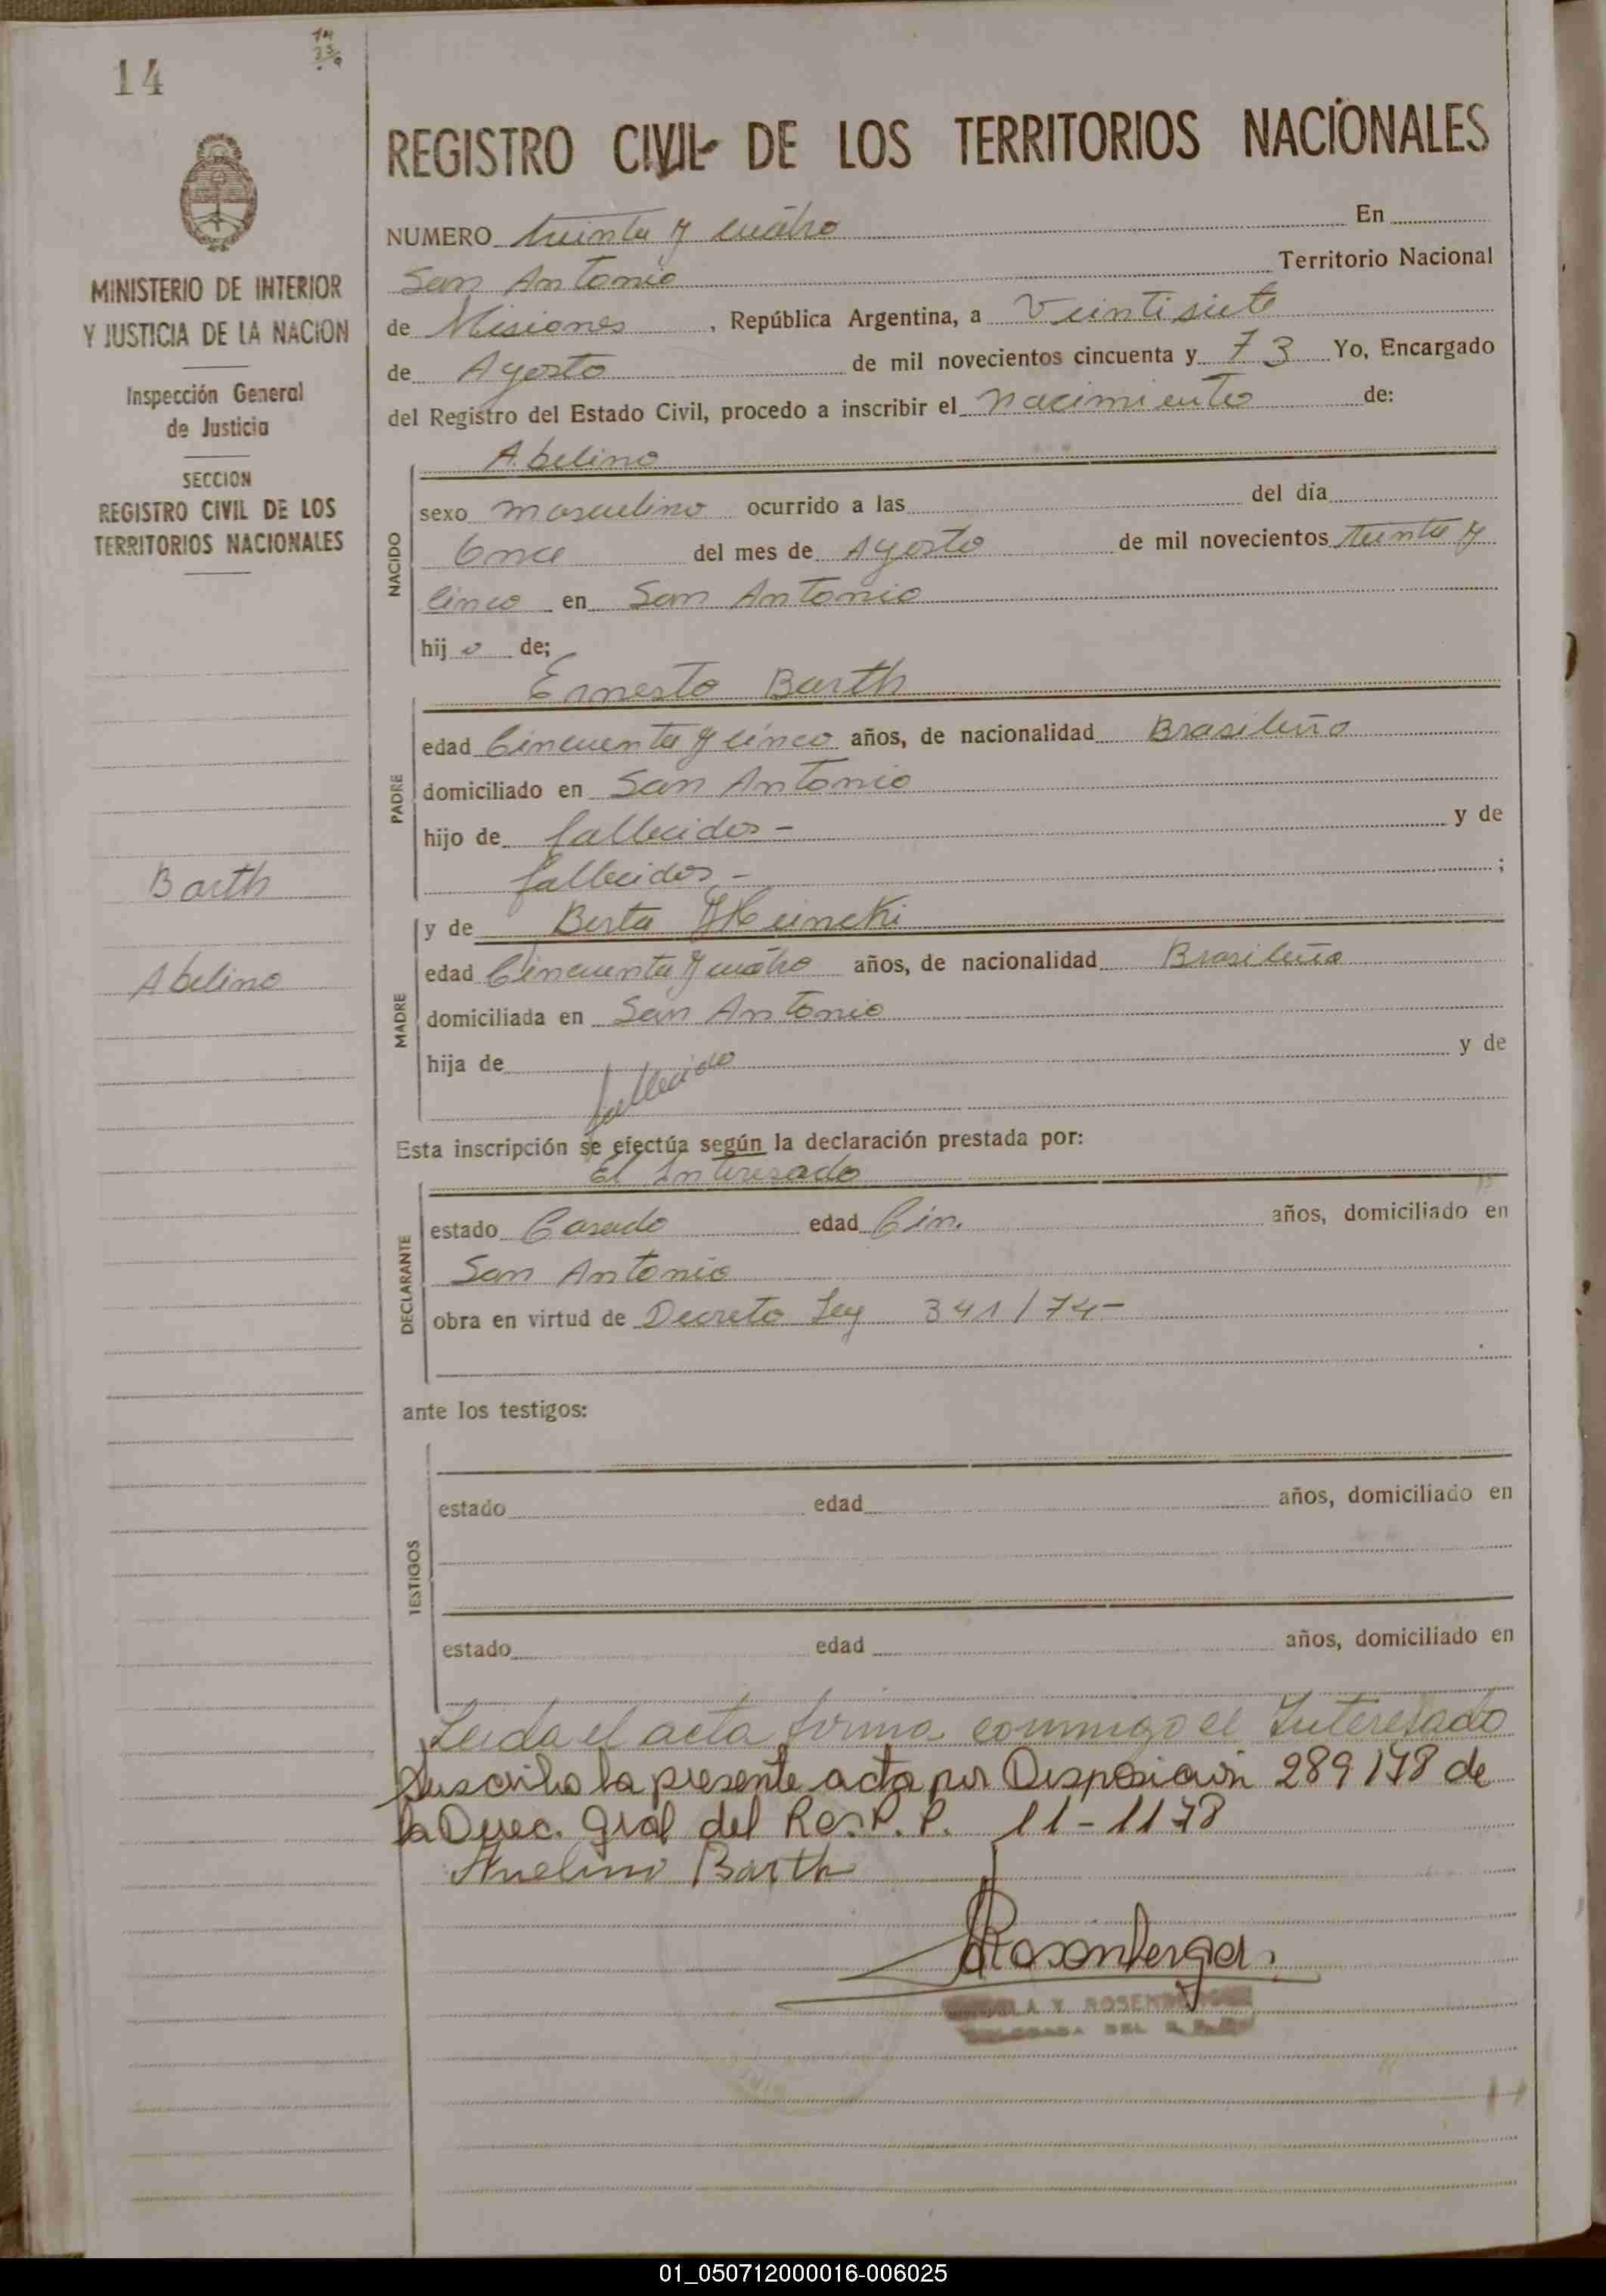 14
REGISTRO CIVIL DE LOS TERRITORIOS NACIONALES
MINISTERIO DE INTERIOR
Y JUSTICIA DE LA NACION
Inspección General
de Justicia
SECCION
REGISTRO CIVIL DE LOS
TERRITORIOS NACIONALES
Barth
Abelino
NUMERO treinta y cuatro En
San Antonio Territorio Nacional
de Misiones , República Argentina, a Veintisiete
de Agosto de mil novecientos cincuenta y 73 Yo, Encargado
del Registro del Estado Civil, procedo a inscribir el nacimiento de:
NACIDO
Abelino
sexo masculino ocurrido a las del día
Once del mes de Agosto de mil novecientos treinta y
cinco en San Antonio
hij o de;
PADRE
Ernesto Barth
edad Cincuenta y cinco años, de nacionalidad Brasileño
domiciliado en San Antonio
hijo de fallecidos - y de
fallecidos - ;
MADRE
y de Berta
edad Cincuenta y cuatro años, de nacionalidad Brasileña
domiciliada en San Antonio
hija de fallecido y de
Esta inscripción se efectúa según la declaración prestada por:
DECLARANTE
El Interesado
estado Casado edad Cin. años, domiciliado en
San Antonio
obra en virtud de Decreto Ley 341/74-
ante los testigos:
TESTIGOS
estado edad años, domiciliado en
estado edad años, domiciliado en
Leida el acta firma conmigo el Interesado
Suscribo la presente acta por Disposición 289/78 de
la Direc. Gral del R. P. 11-11-78
Avelino Barth
Rosenberger
01_050712000016-006025